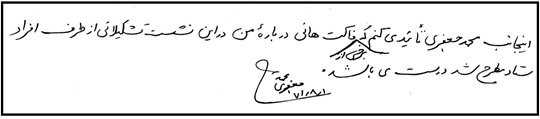 اینجانب محمد جعفری تأیید می کنم که فاکت هائی درباره من در این نشست تشکیلاتی از طرف افراد
ستاد مطرح شد درست می باشد.
محمد
جعفری
۷۱/۸/۱